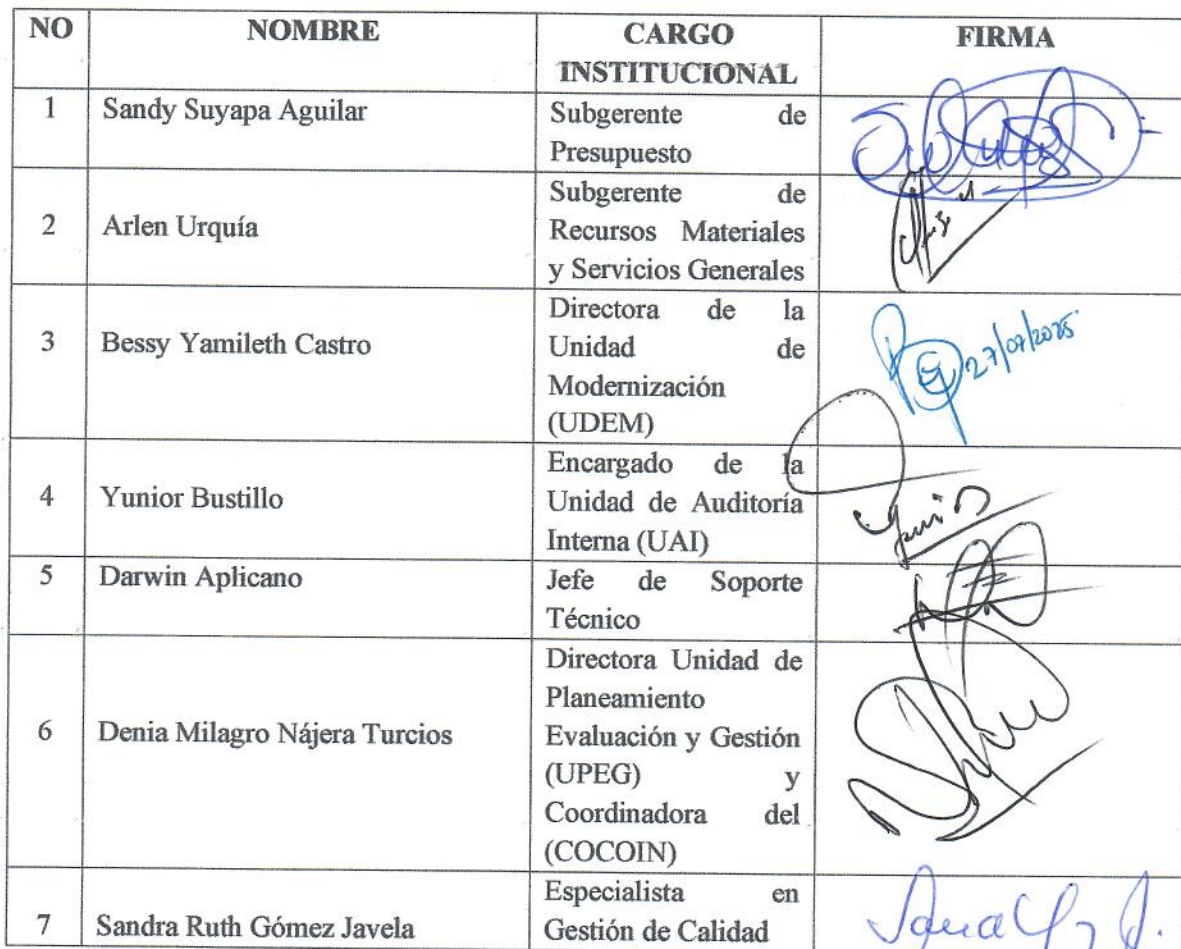 NO NOMBRE CARGO INSTITUCIONAL FIRMA
1 Sandy Suyapa Aguilar Subgerente de
Presupuesto
2 Arlen Urquía Subgerente de
Recursos Materiales
y Servicios Generales
3 Bessy Yamileth Castro Directora de la
Unidad de
Modernización
(UDEM)
27/07/2025
4 Yunior Bustillo Encargado de la
Unidad de Auditoría
Interna (UAI)
5 Darwin Aplicano Jefe de Soporte
Técnico
6 Denia Milagro Nájera Turcios Directora Unidad de
Planeamiento
Evaluación y Gestión
(UPEG) y
Coordinadora del
(COCOIN)
7 Sandra Ruth Gómez Javela Especialista en
Gestión de Calidad